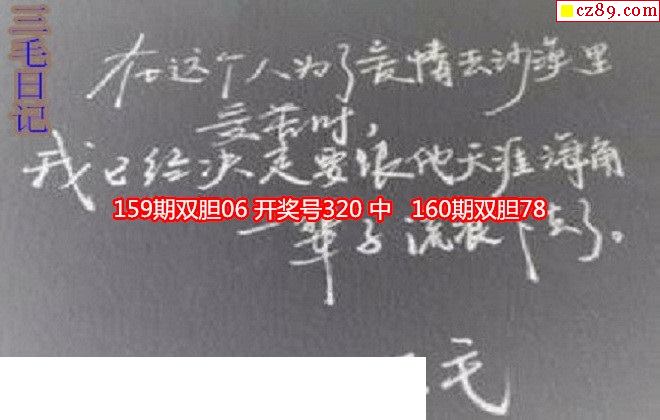 cz89.com
三毛日记
在这个人为了爱情去沙漠里
受苦时，
我已经决定要跟他天涯海角
159期双胆06 开奖号320 中 160期双胆78
一辈子流浪下去了。
毛